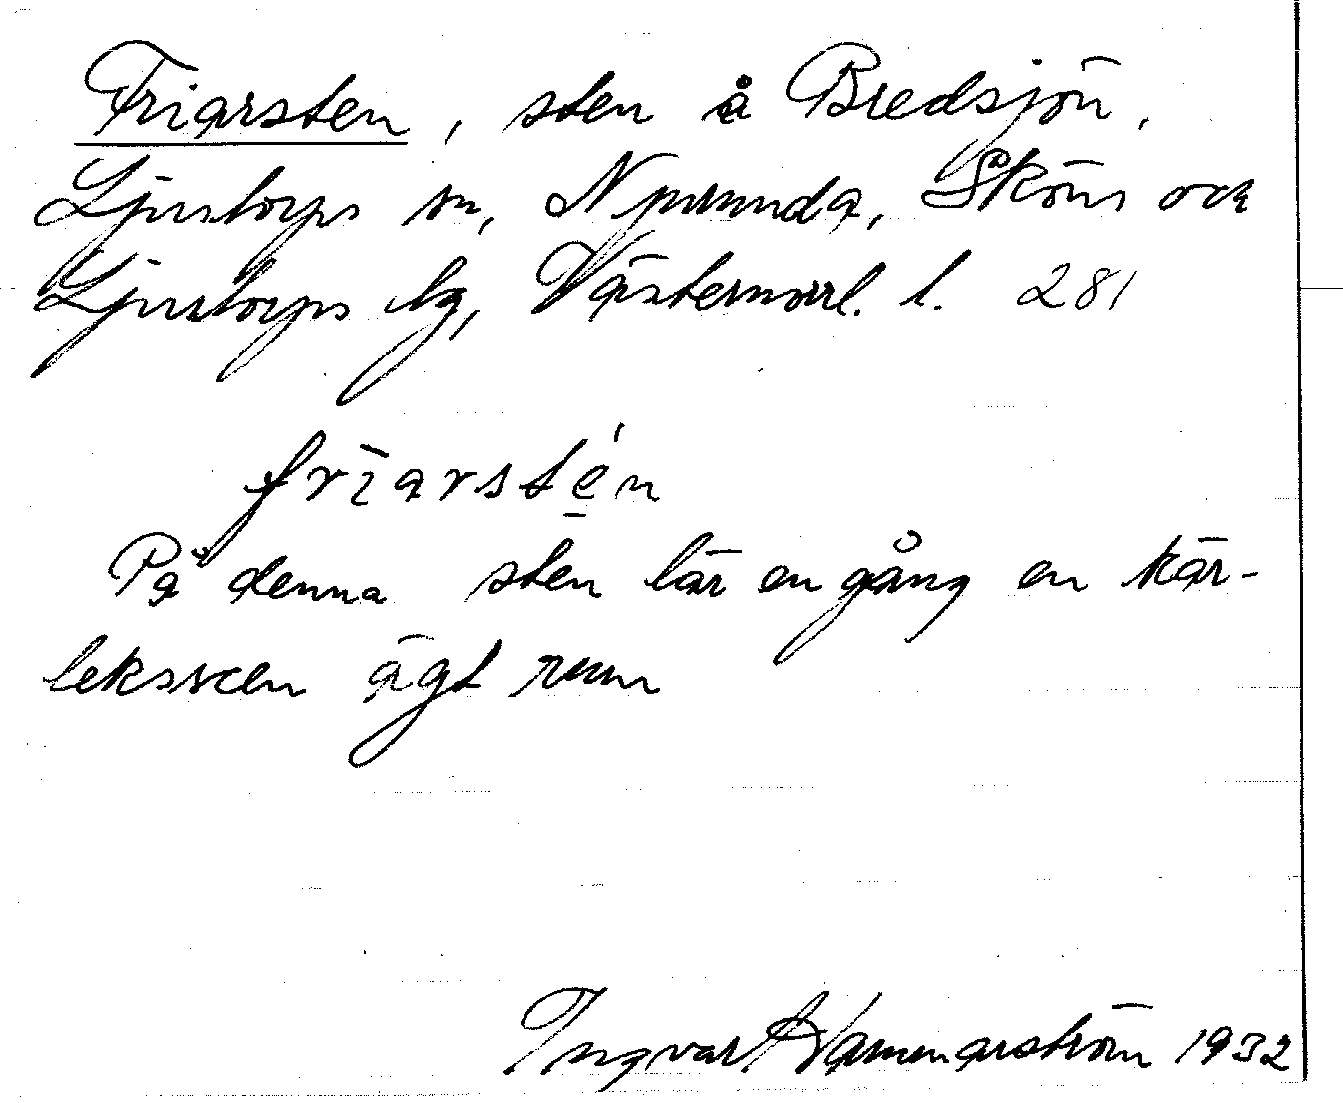 Friarsten, sten å Bredsjön,
Ljustorps sn, Njurunda, Sköns och
Ljustorps tg, Västernorrl. l. 281
frīarstén
På denna sten lär en gång en kär-
leksscen ägt rum
Ingvar Hammarström 1932